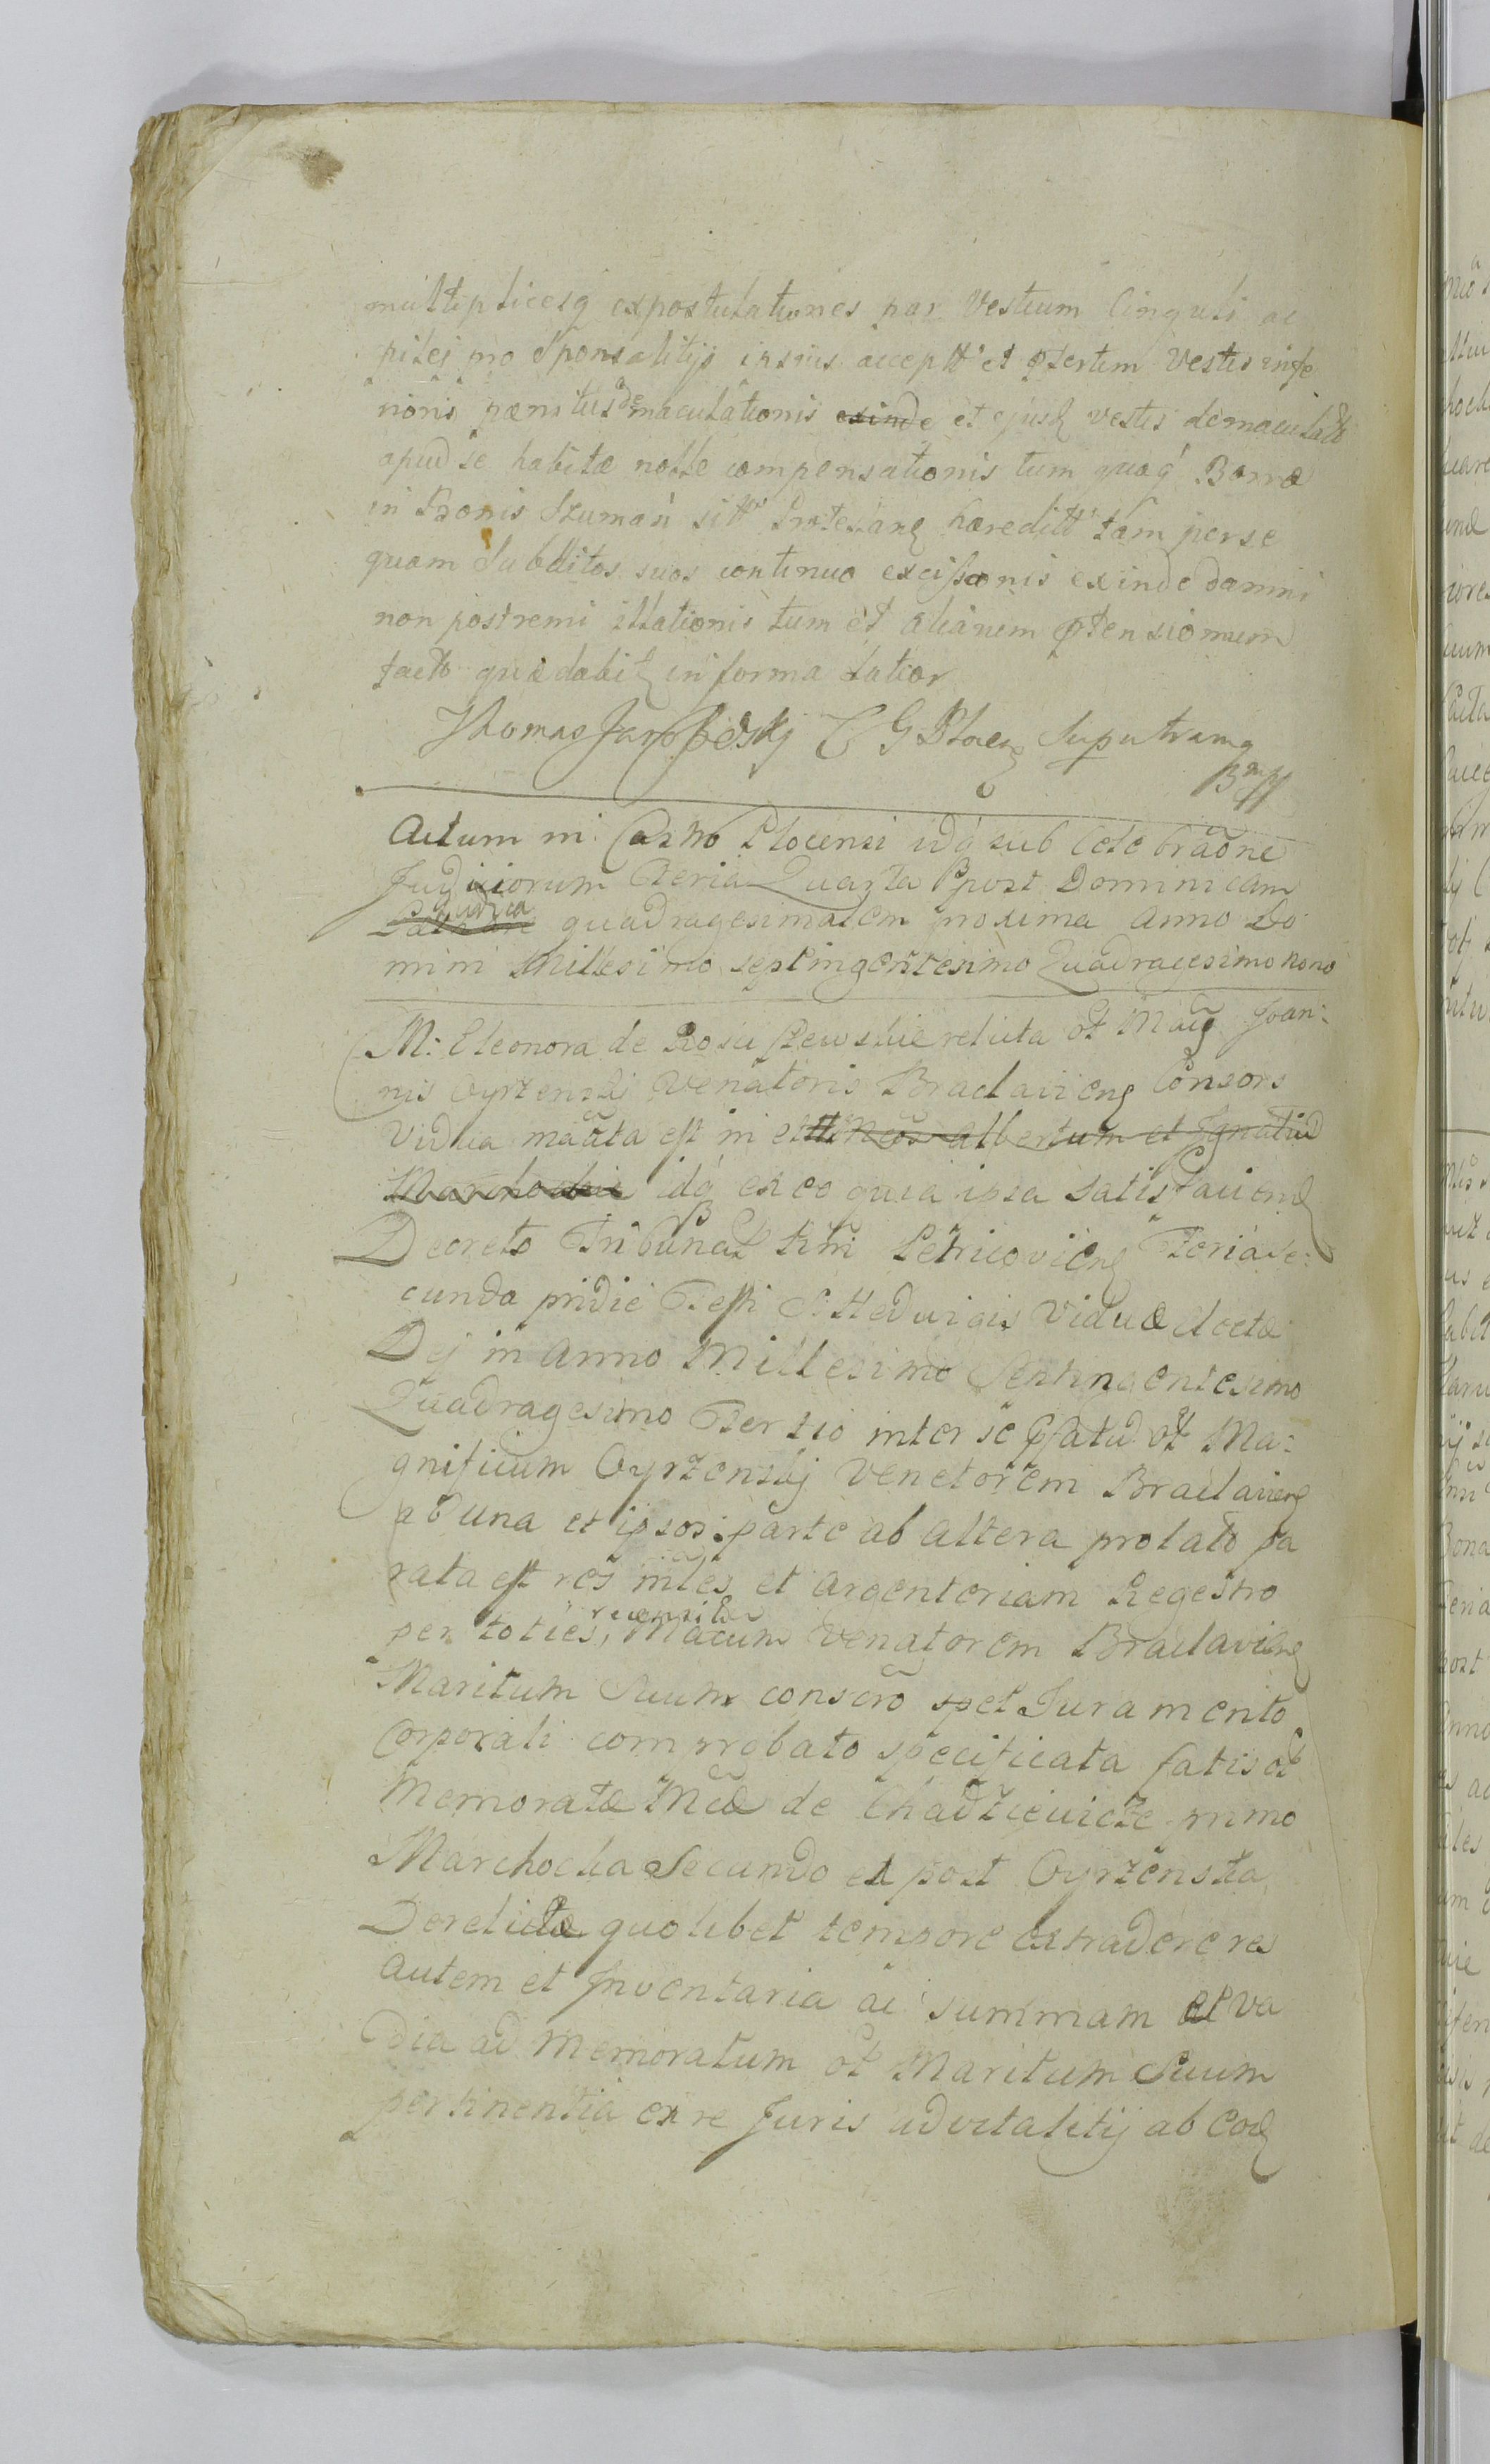 multiplicesq expostulationes par Vestium Cinguli ac
pilej pro Sponsalitijs ipsius accept et ptertim Vestis infe
rioris paenitus demaculationis exinde et ejusq vestis demaculatae
apud se habitae nolle compensationis tum quoq Borrae
in Bonis Szuman sitt Protestanq haeredittt tam per se
quam Subditos suos continuo excissionis exinde damni
non postremi illationis tum et aliarum ptensionum
facto quae dabit in forma latior
Thomas C G Ploc Supu
Actum in Castro Plocensi idq sub Celebraone
Judiciorum Feria Quarta post Dominicam
Judica quadragesimalem proxima Anno Do
mini Millesimo septingentesimo Quadragesimo nono
M: Eleonora de Rosciszewskie relicta ol Maci Joan:
nis Cyrzenski Venatoris Braclavienq Consors
Vidua maata est in et Nos Albertum et Ignatiu
Marchockie idq ex eo quia ipsa Satisfaciend
Decreto Tribunal Rni Petricovienq Feria Se:
cunda pridie Festi S Hedvigis Viduae Electae
Dej in Anno Millesimo Septingentesimo
Quadragesimo Tertio inter se pfatu ol Ma:
gnificum Cyrzenskj Venetorem Braclavienq
ab una et ipsos parte ab altera prolato pa
rata est res mles et Argenteriam Regestro
per toties recensitu Macum Venatorem Braclavienq
Maritum Suum conscro et Juramento
Corporali comprobato specificata fatis ol
Memoratae Mcae de Chadzieuicze primo
Marchocka Secundo et post Cyrzenska
Derelictae quolibet tempore extradere res
autem et Inventaria ac summam et va
dia ad Memoratum ol Maritum Suum
pertinentia ex re Juris advitalitij ab Eoq